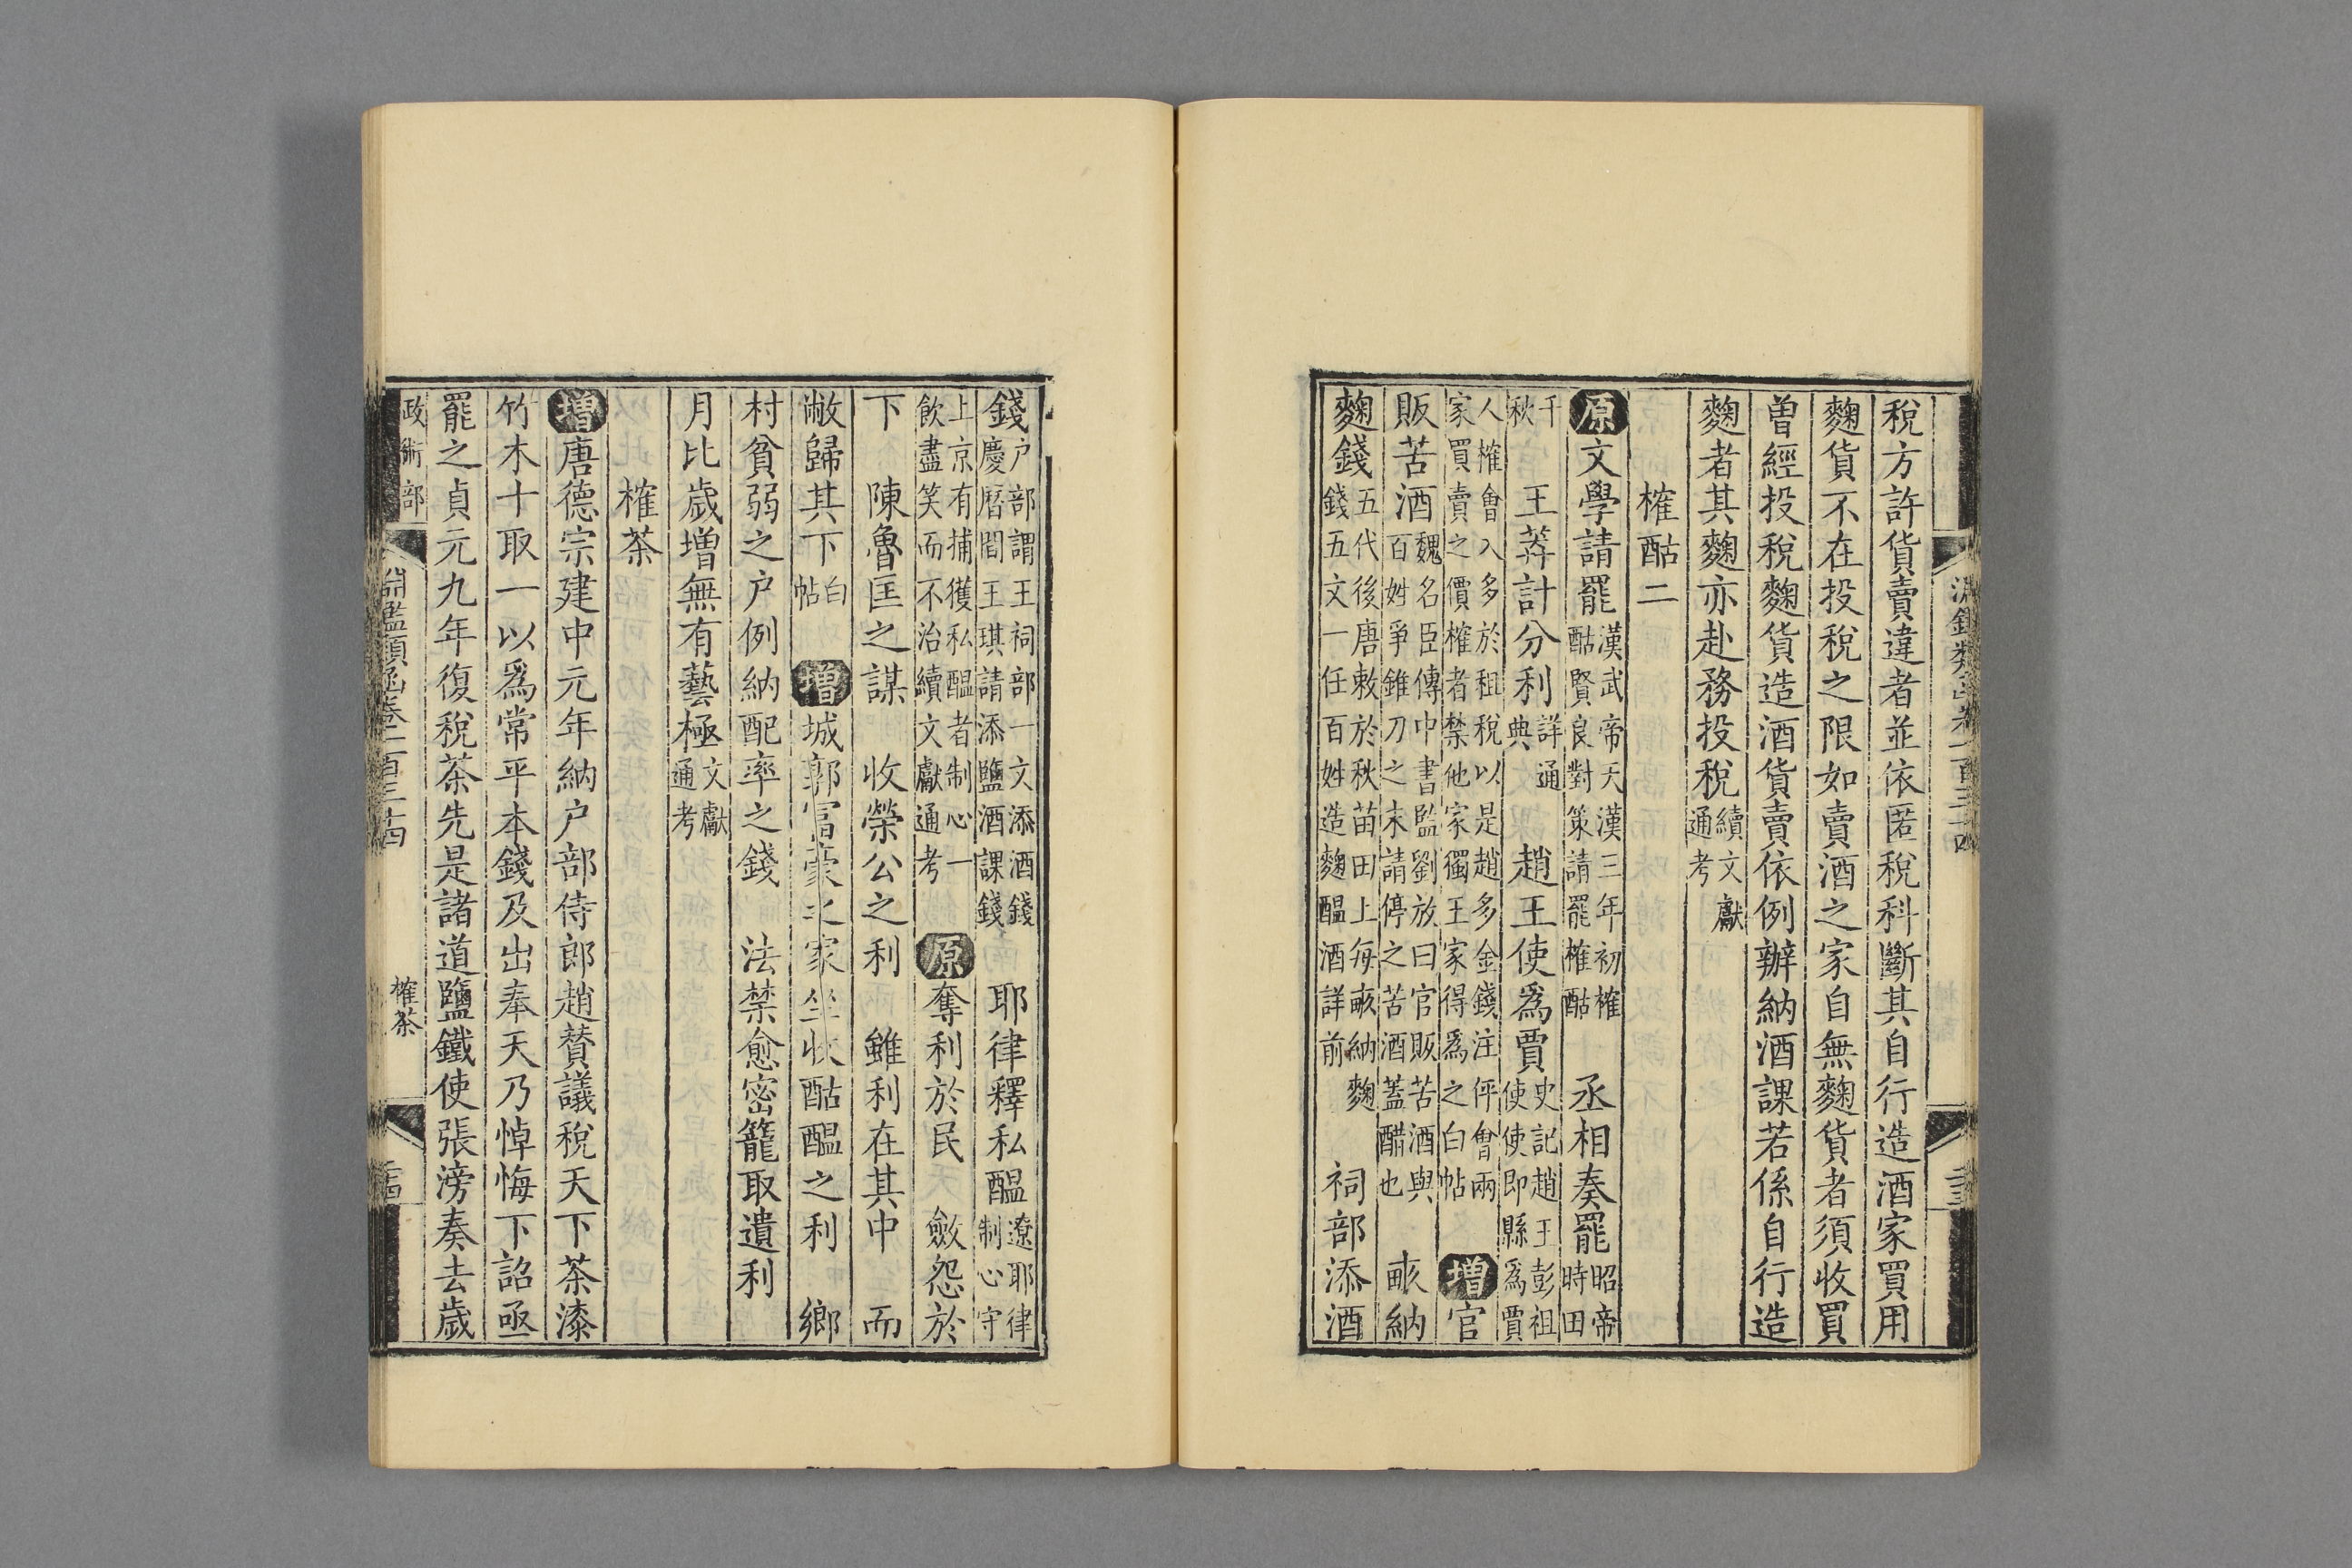 稅方許貨賣違者並依匿稅科斷其自行造酒家買用
麴貨不在投稅之限如賣酒之家自無麴貨者須收買
曽經投稅麴貨造酒貨賣依例辦納酒課若係自行造
麴者其麴亦赴務投稅續文獻通考
榷酤二
原文學請罷漢武帝天漢三年初榷酤賢良對策請罷榷酤 丞相奏罷昭帝時田
千秋 王莽計分利詳通典 趙王使爲賈史記趙王彭祖使使即縣爲賈
人榷會入多於租稅以是趙多金錢注伻會兩家買賣之價榷者禁他家獨王家得爲之白帖 增官
販苦酒魏名臣傳中書監劉放曰官販苦酒與百姓爭錐刀之末請停之苦酒蓋醋也 畞納
麴錢五代後唐敕於秋苗田上每畞納麴錢五文一任百姓造麴醞酒詳前 祠部添酒
錢户部謂王祠部一文添酒錢慶曆間王琪請添鹽酒課錢 耶律釋私醞遼耶律制心守
上京有捕獲私醞者制心一飲盡笑而不治續文獻通考 原奪利於民 斂怨於
下 陳魯匡之謀 收榮公之利 雖利在其中 而
敝歸其下白帖 增城郭富豪之家坐收酤醞之利 鄉
村貧弱之户例納配率之錢 法禁愈密籠取遺利
月比歲增無有藝極文獻通考
榷茶
增唐德宗建中元年納户部侍郎趙賛議稅天下茶漆
竹木十取一以爲常平本錢及出奉天乃悼悔下詔亟
罷之貞元九年復稅茶先是諸道鹽鐵使張滂奏去歲
政術部
淵鑑類函卷一百三十四
榷茶